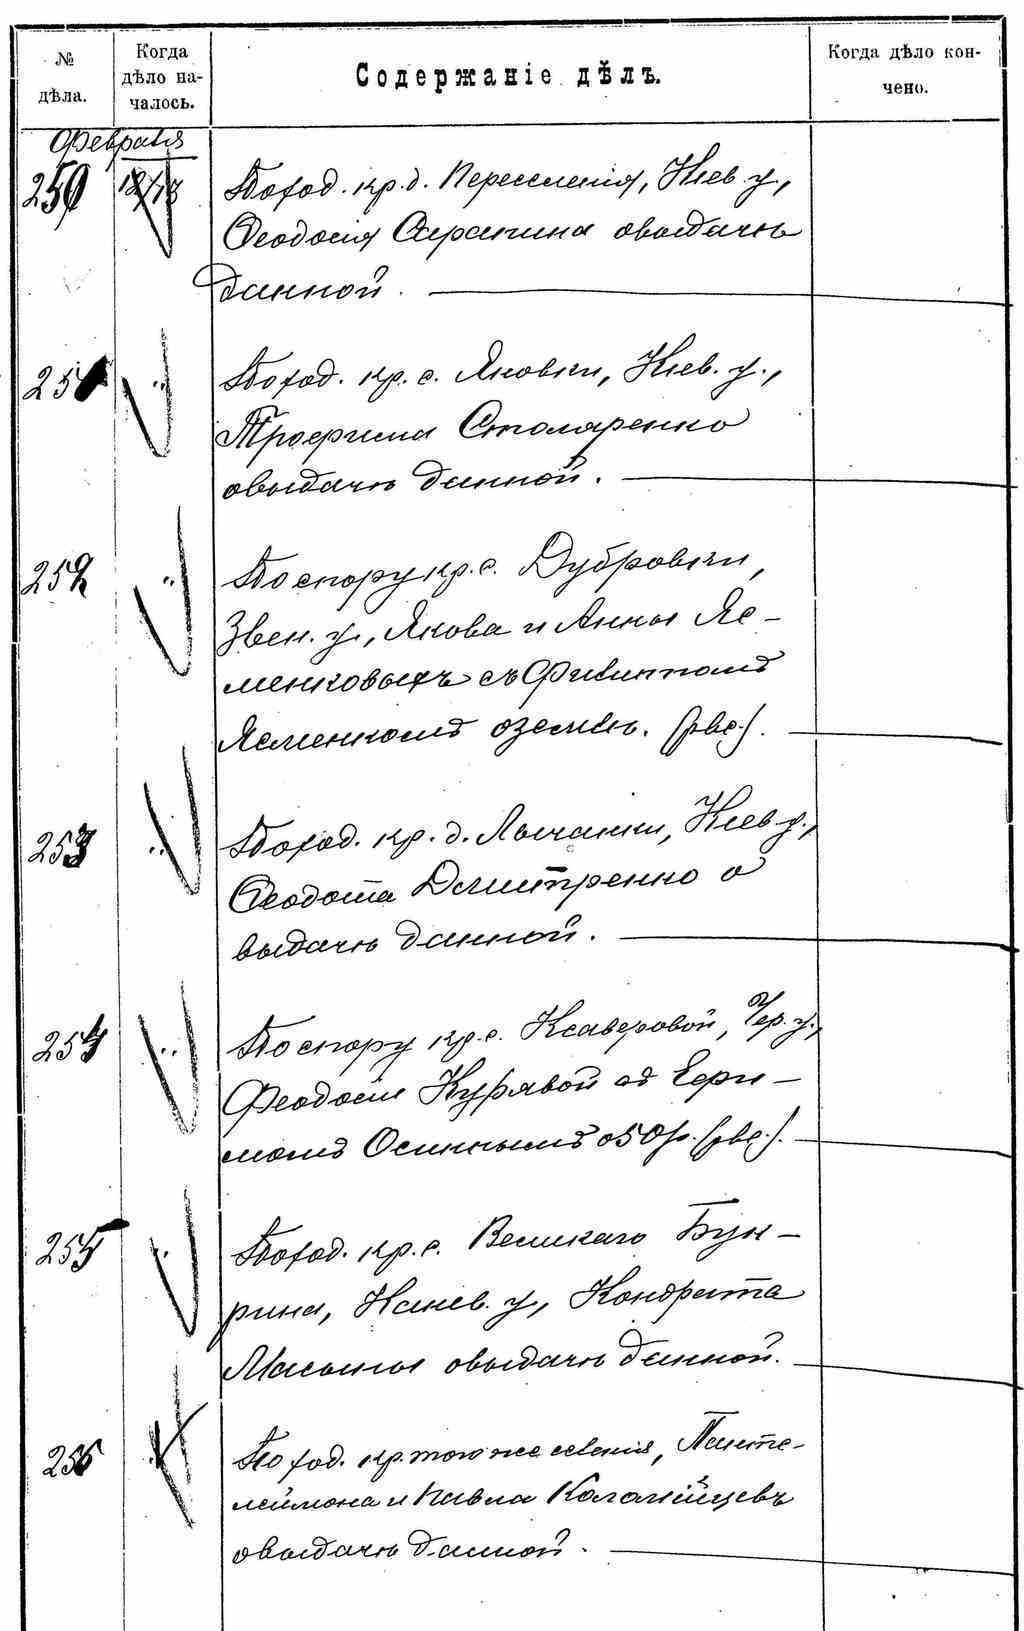 № дѣла.
Когда дѣло на-
чалось.
Содержаніе дѣлъ.
Когда дѣло кон-
чено.
Февраля
250
По ход. кр. д. Переселенія, Кіев. у.,
Ѳеодосія о выдачѣ
данной.
251 "
По ход. кр. с. Яновки, Кіев. у.,
Трофима Столяренко
о выдачѣ данной.
252 "
По спору кр. с. Дубровки,
Звен. у., Якова и Анны Яс-
менковыхъ съ Филиппомъ
Ясменкомъ о землѣ.
253 "
По ход. кр. д. Лычанки, Кіев. у.,
Ѳеодота Дмитренко о
выдачѣ данной.
254 "
По спору кр. с. Ксаверовой, Чер. у.,
Феодосіи Курявой съ Ефи-
момъ Осиннымъ о 50 р.
255 "
По ход. кр. с. Великаго Бук-
рина, Канев. у., Кондрата
Масыны о выдачѣ данной.
256 "
По ход. кр. того же селенія, Панте-
леймона и Павла Коломійцевъ
о выдачѣ данной.